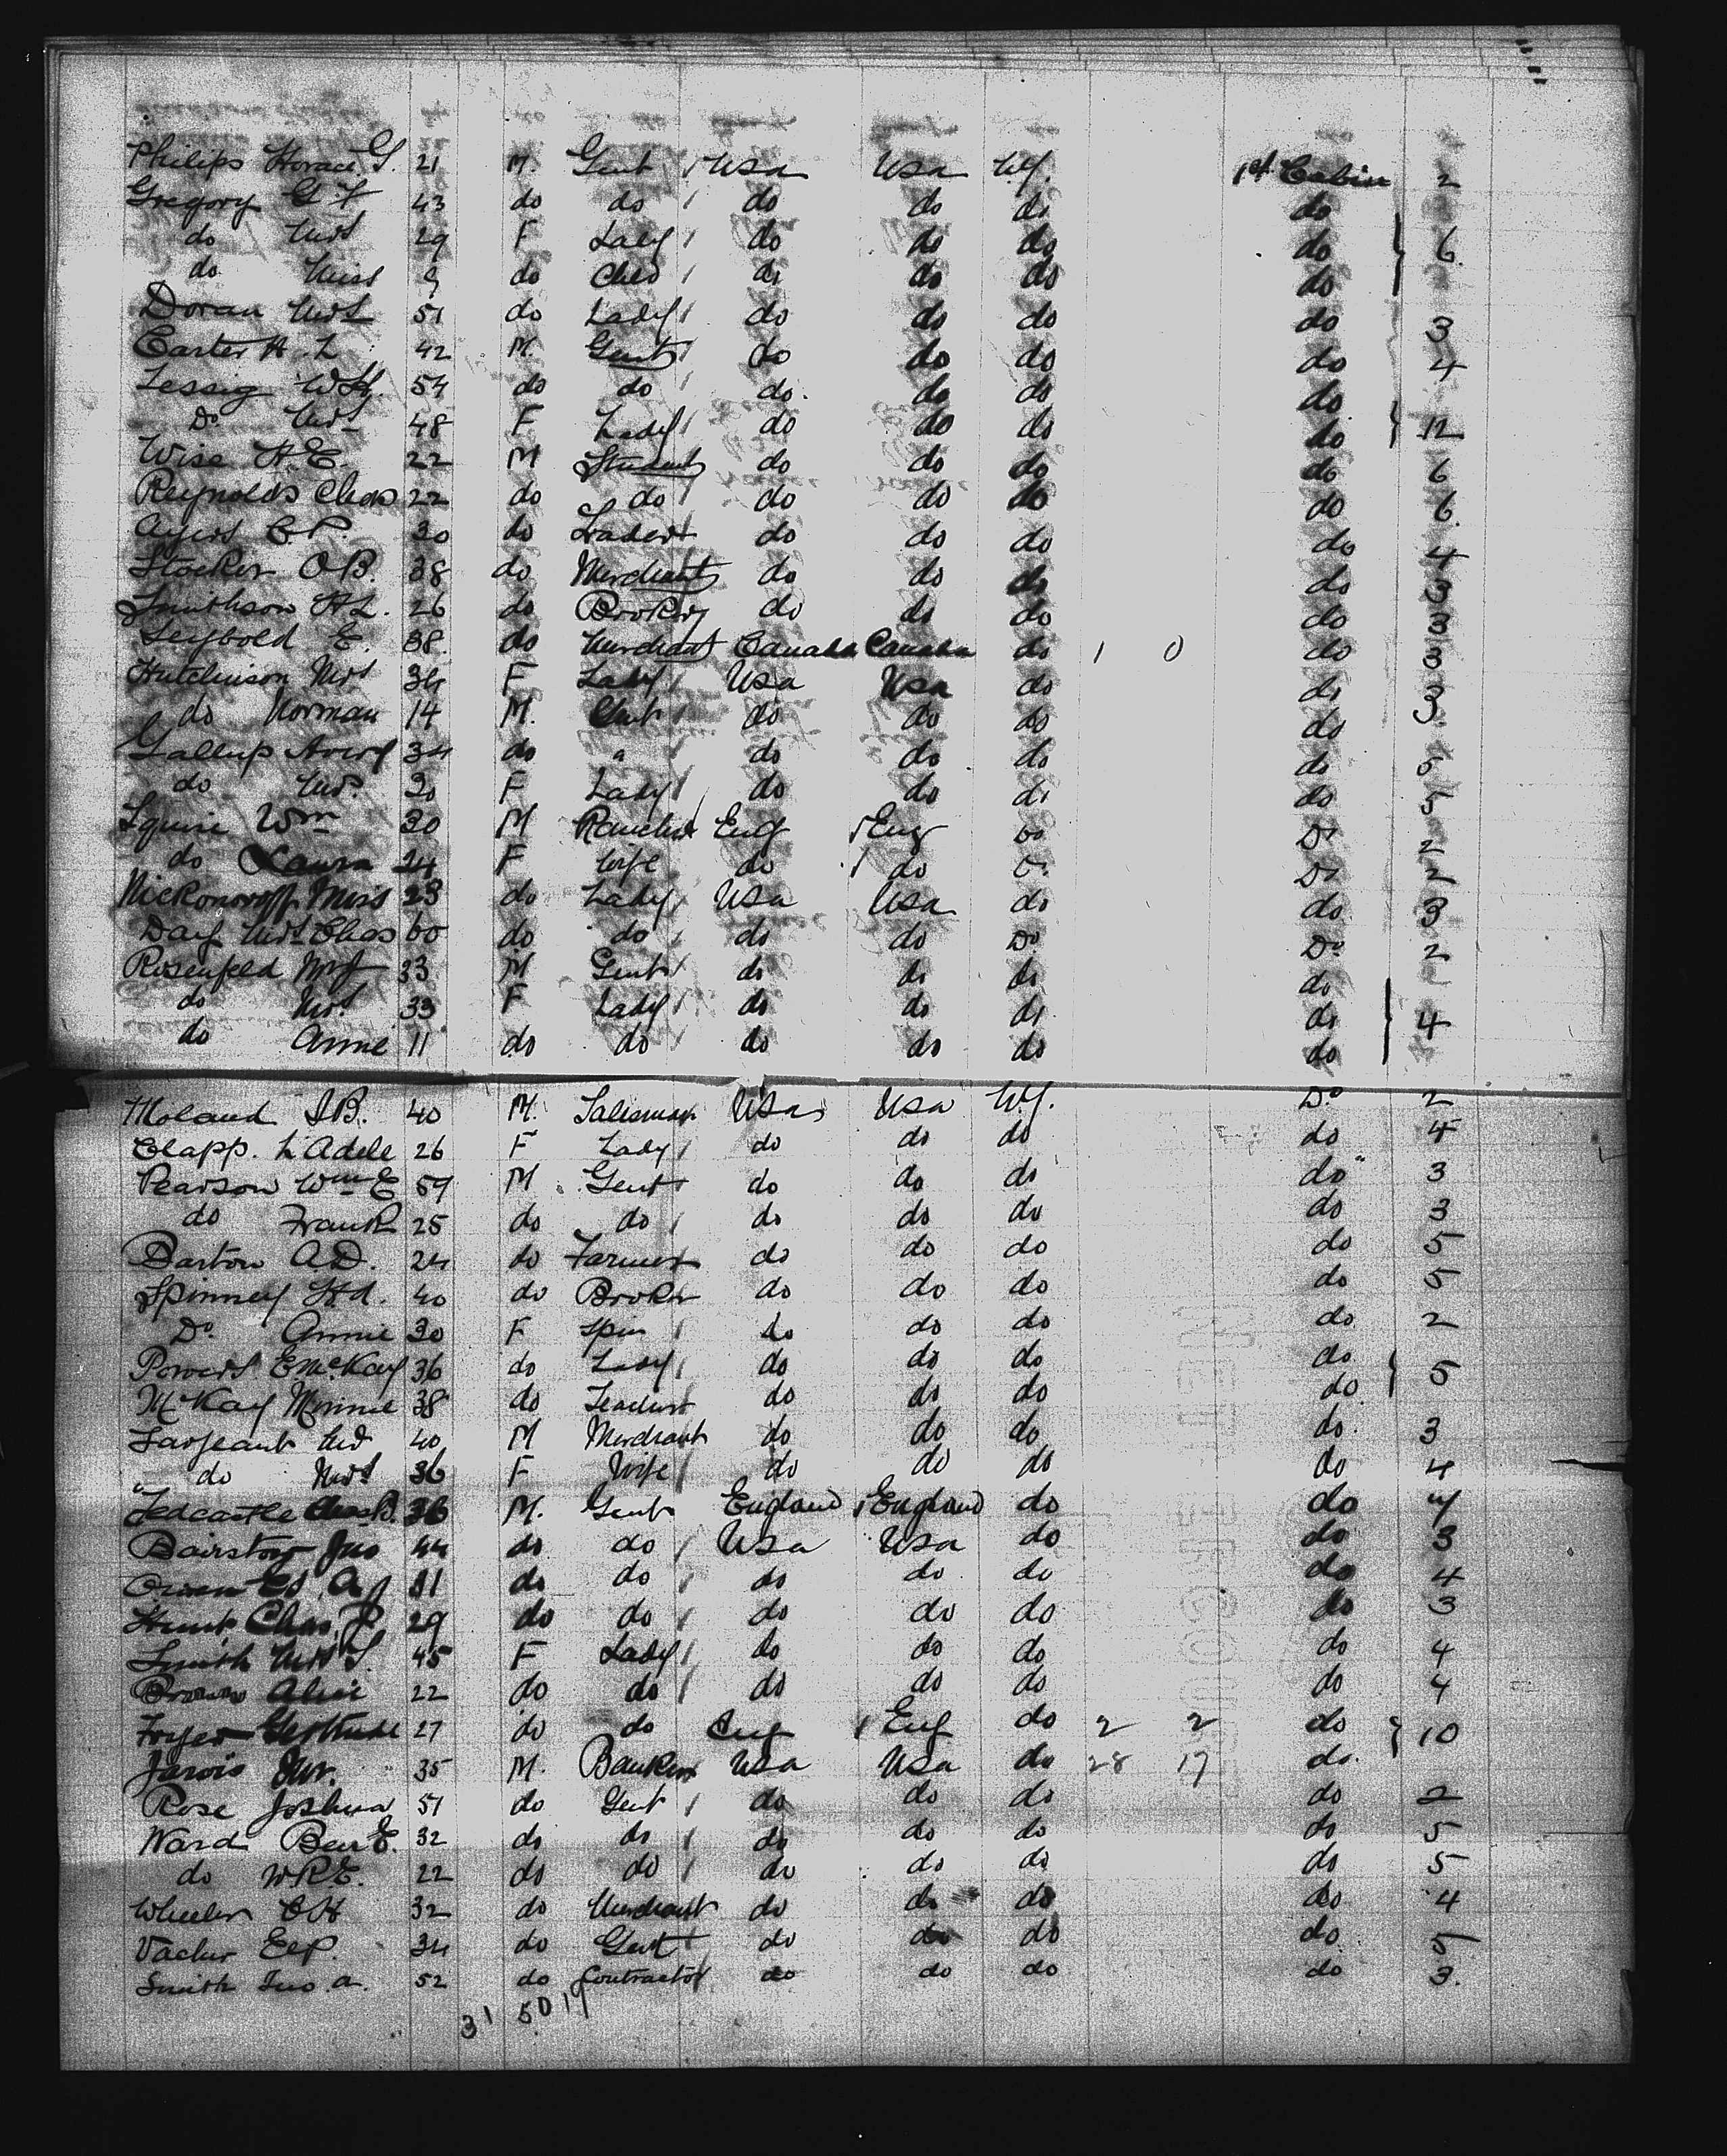 Philips Horace G. 21 M. Gent USA USA N.Y. 1st Cabin 2
Gregory G F 43 do do do do do do
do Mrs 29 F Lady do do do do 6
do Miss 9 do Child do do do do
Doran Mrs 51 do Lady do do do do 3
Carter H. L 42 M. Gent do do do do 4
Lessig W.H. 54 do do do do do do
Do Mrs 48 F Lady do do do do 12
Wise H.E. 22 M Student do do do do 6
Reynolds Chas 22 do do do do do do 6
Ayers C.P. 30 do do do do do 4
Stocker O.B. 38 do Merchant do do do do 3
Smithson H L. 26 do Broker do do do do 3
Seybold E. 38 do Merchant Canada Canada do 1 0 do 3
Hutchinson Mrs 34 F Lady USA USA do do 3
do Norman 14 M. Gent do do do do
Gallup Avery 34 do " do do do do 5
do Mrs. 30 F Lady do do do do 5
Squire Wm 30 M Rancher Eng Eng do Do 2
do Laura 24 F Wife do do do Do 2
Miss 23 do Lady USA USA do do 3
Day Mrs Chas 60 do do do do Do Do 2
Rosenfeld 33 M Gent do do do do
do Mrs 33 F Lady do do do do 4
do Anne 11 do do do do do do
Moland I B. 40 M. Salesman USA USA N.Y. Do 2
Clapp. L Adele 26 F Lady do do do do 4
Pearson Wm E 59 M Gent do do do do 3
do Frank 25 do do do do do do 3
Barton A.D. 24 do Farmer do do do do 5
Spinney 40 do Broker do do do do 5
Do Annie 30 F Spin do do do do 2
Powers E. McKay 36 do Lady do do do do 5
McKay Minnie 38 do Teacher do do do do
Sargeant Mr 40 M Merchant do do do do 3
do Mrs 36 F Wife do do do do 4
Tedcastle 36 M. Gent England England do do 4
Bairstow Jno 44 do do USA USA do do 3
31 do do do do do do 4
Hunt Chas. 29 do do do do do do 3
Smith Mrs S. 45 F Lady do do do do 4
Alice 22 do do do do do do 4
Fryer Gertrude 27 do do Eng Eng do 2 2 do 10
Jarvis Mr. 35 M. Banker USA USA do 28 17 do
Rose Joshua 51 do Gent do do do do 2
Ward Benj E. 32 do do do do do do 5
do W R E. 22 do do do do do do 5
Wheeler C H 32 do Merchant do do do do 4
34 do Gent do do do do 5
Smith Jno. A. 52 do Contractor do do do do 3.
31 50 19